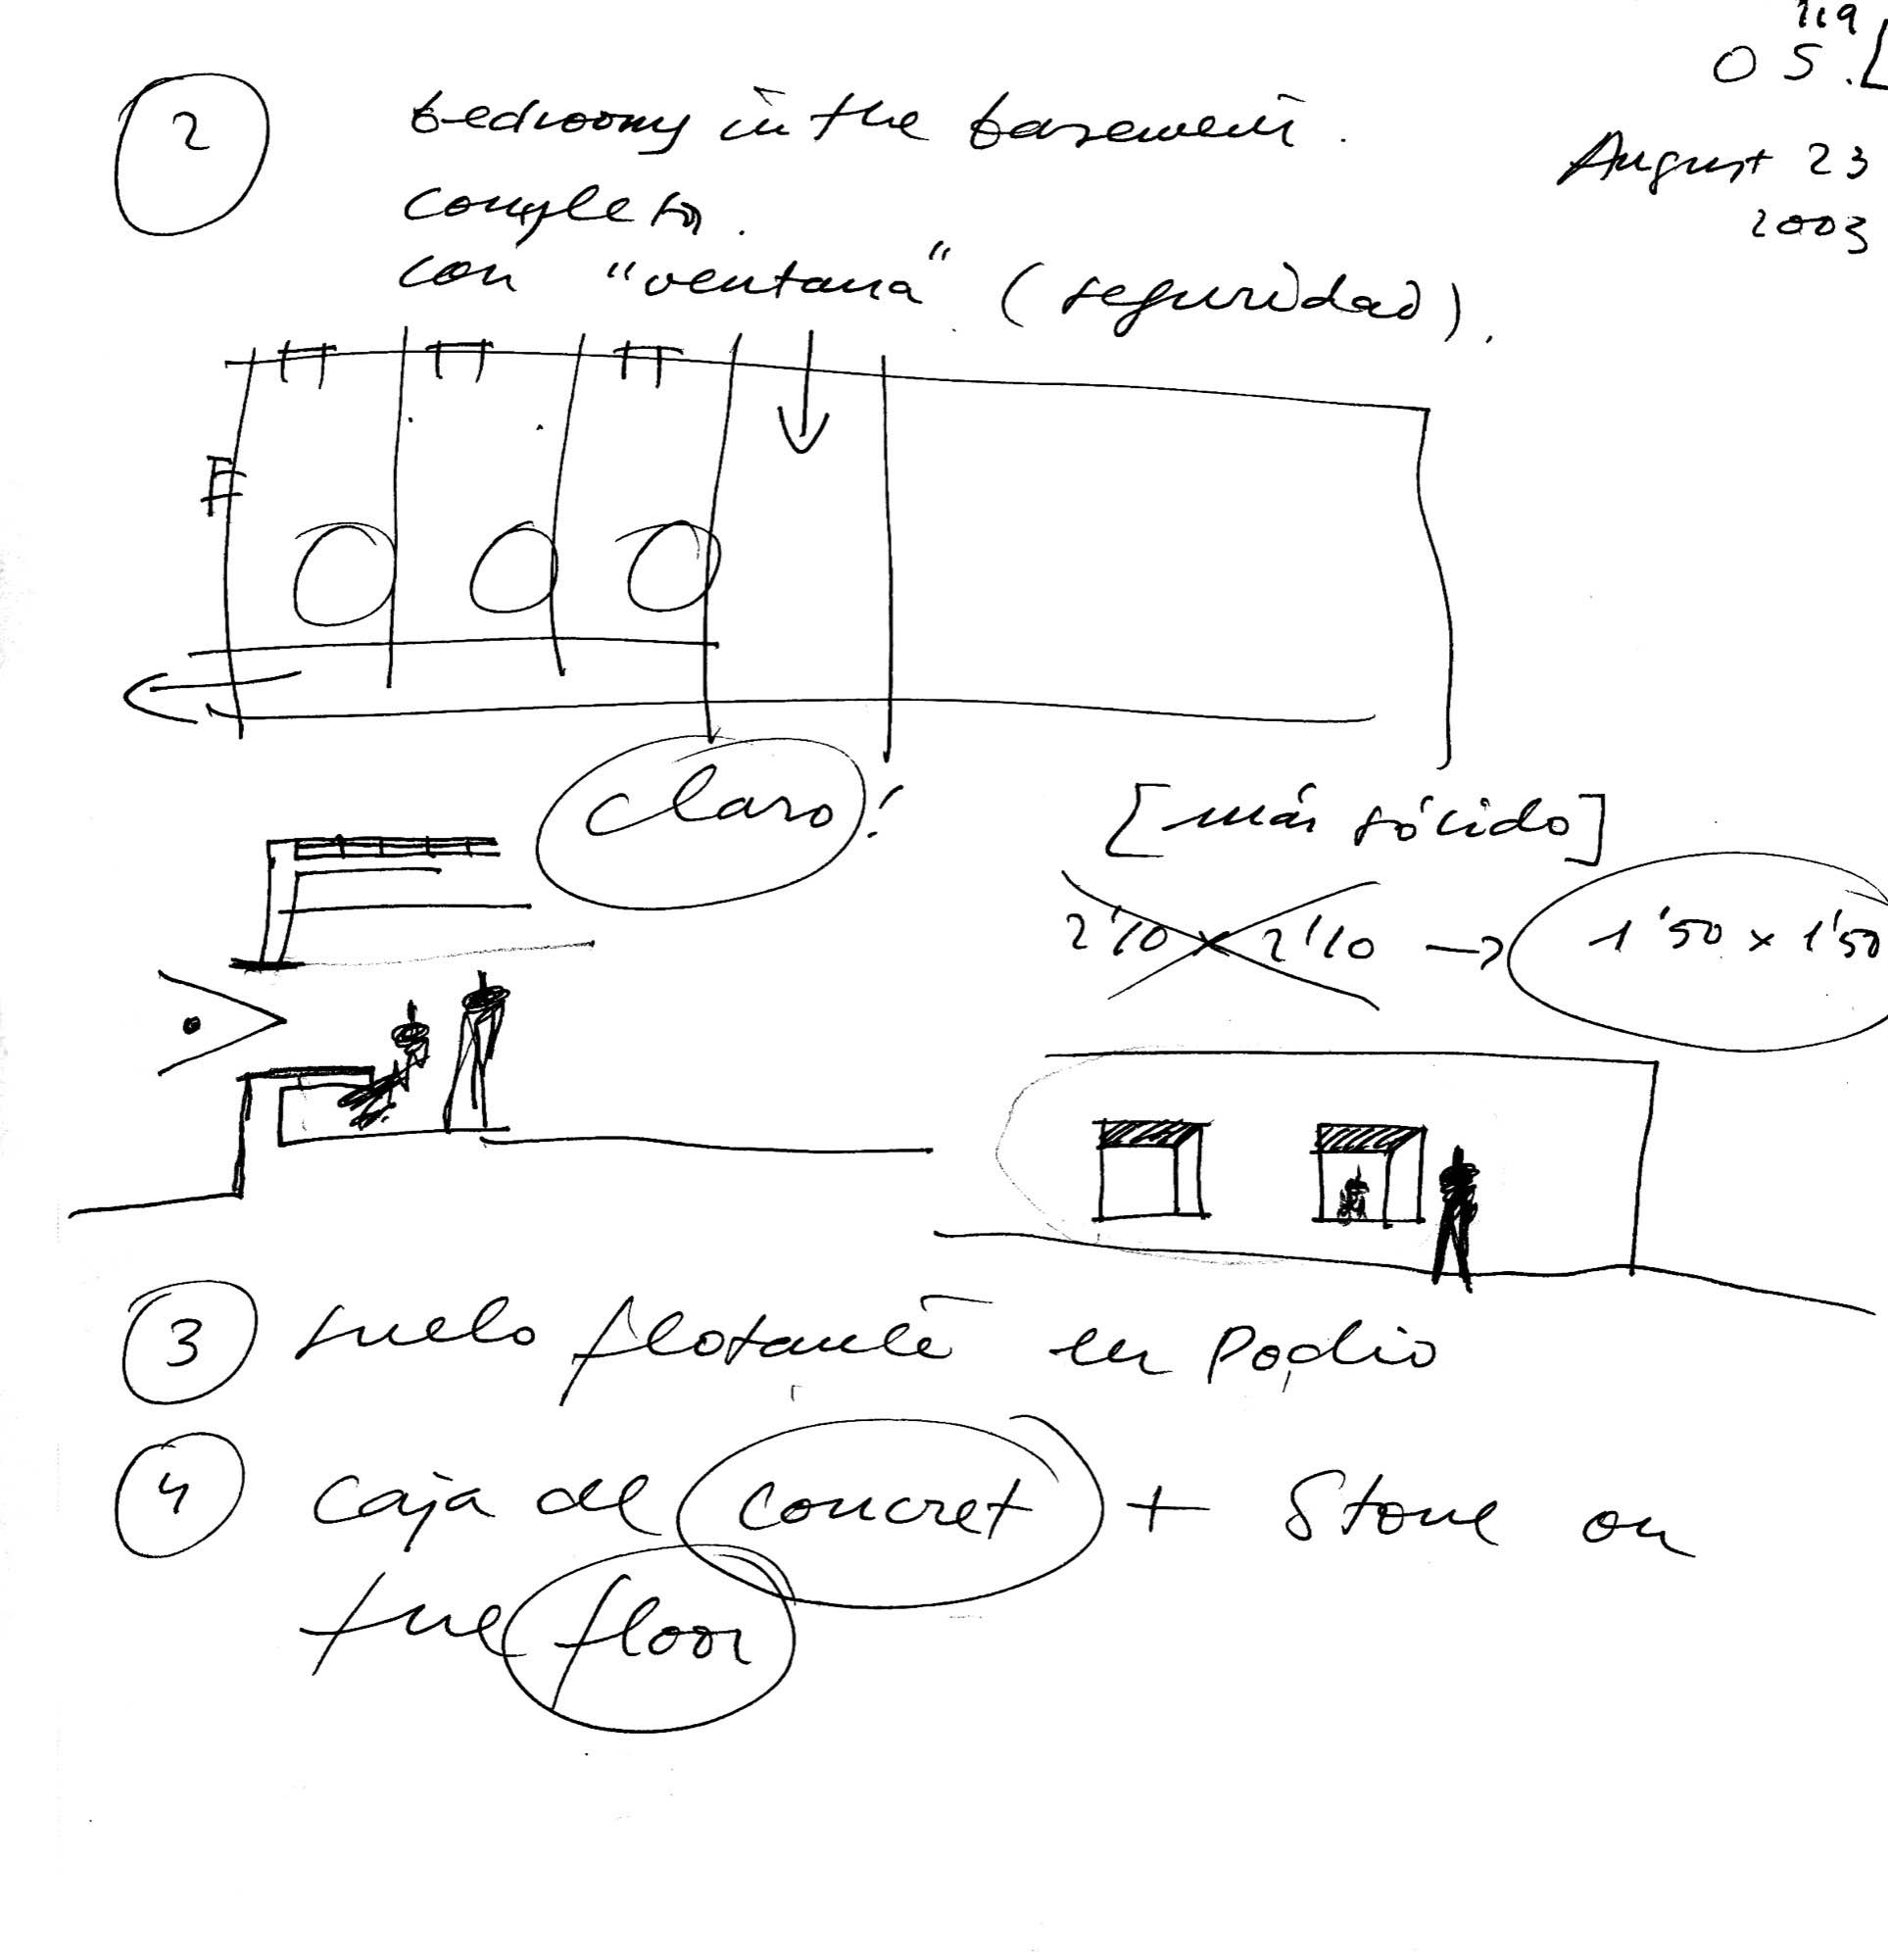 OS.
2
bedrooms in the basement.
August 23
completo.
2003
con "ventana" (seguridad).
claro!
[más sólido]
2'10 x 2'10 → 1'50 x 1'50
3 suelo flotante en Podio
4 caja de concret + Stone on
the floor